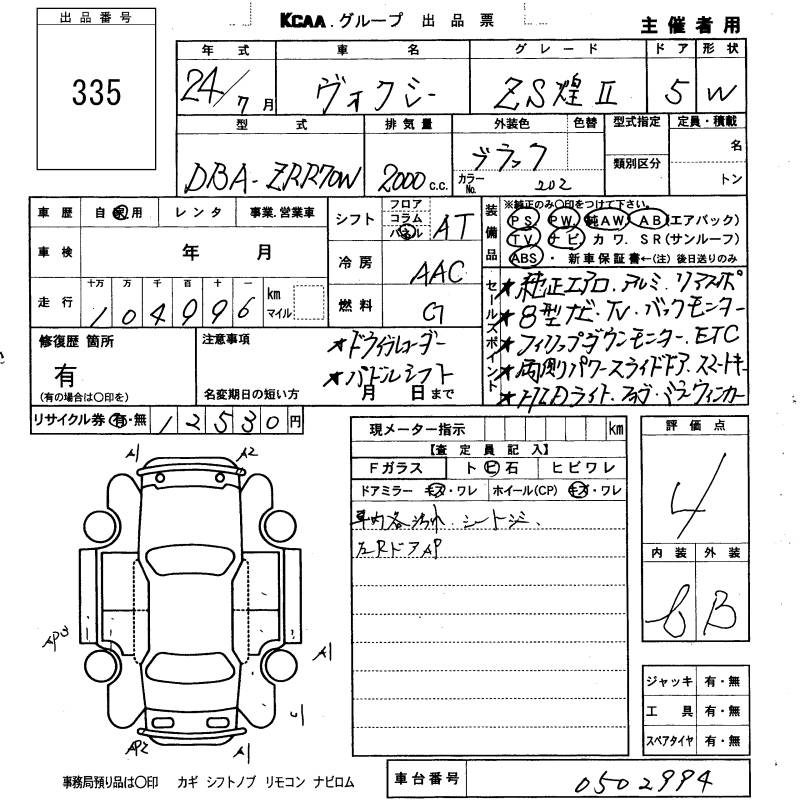 出品番号
335
KCAA.グループ 出品票
主催者用
年式 車名 グレード ドア 形状
24/7月 ヴォクシー ZS煌II 5 W
型式 排気量 外装色 色替 型式指定 定員・積載
DBA-ZRR70W 2000c.c. ブラック 名
カラーNo. 202 類別区分 トン
車歴 自家用 レンタ 事業.営業車
シフト フロア コラム パネル AT
装備品
※純正のみ○印をつけて下さい。
PS PW 純AW AB(エアバック)
TV ナビ カワ. SR(サンルーフ)
ABS ・ 新車保証書←(注)後日送りのみ
車検 年 月
冷房 AAC
走行 十万 万 千 百 十 一
104996 km マイル
燃料 G
セールスポイント
★純正エアロ.アルミ.リアスポ
★8型ナビ.TV.バックモニター
★フィリップダウンモニター.ETC
★両側パワースライドドア.スマートキー
★HIDライト.フォグ.ミラーウィンカー
修復歴 箇所
有
(有の場合は○印を)
注意事項
★ドライブレコーダー
★パドルシフト
名変期日の短い方 月 日まで
リサイクル券 有・無 12530円
現メーター指示 km
【査定員記入】
Fガラス トビ石 ヒビワレ
ドアミラー キズ・ワレ ホイール(CP) キズ・ワレ
車内各汚れ.シートシミ、
左RドアAP
評価点
4
内装 外装
b B
A1 A2
AP3
A1
AP2 A1
ジャッキ 有・無
工具 有・無
スペアタイヤ 有・無
事務局預り品は○印 カギ シフトノブ リモコン ナビロム
車台番号 0502994